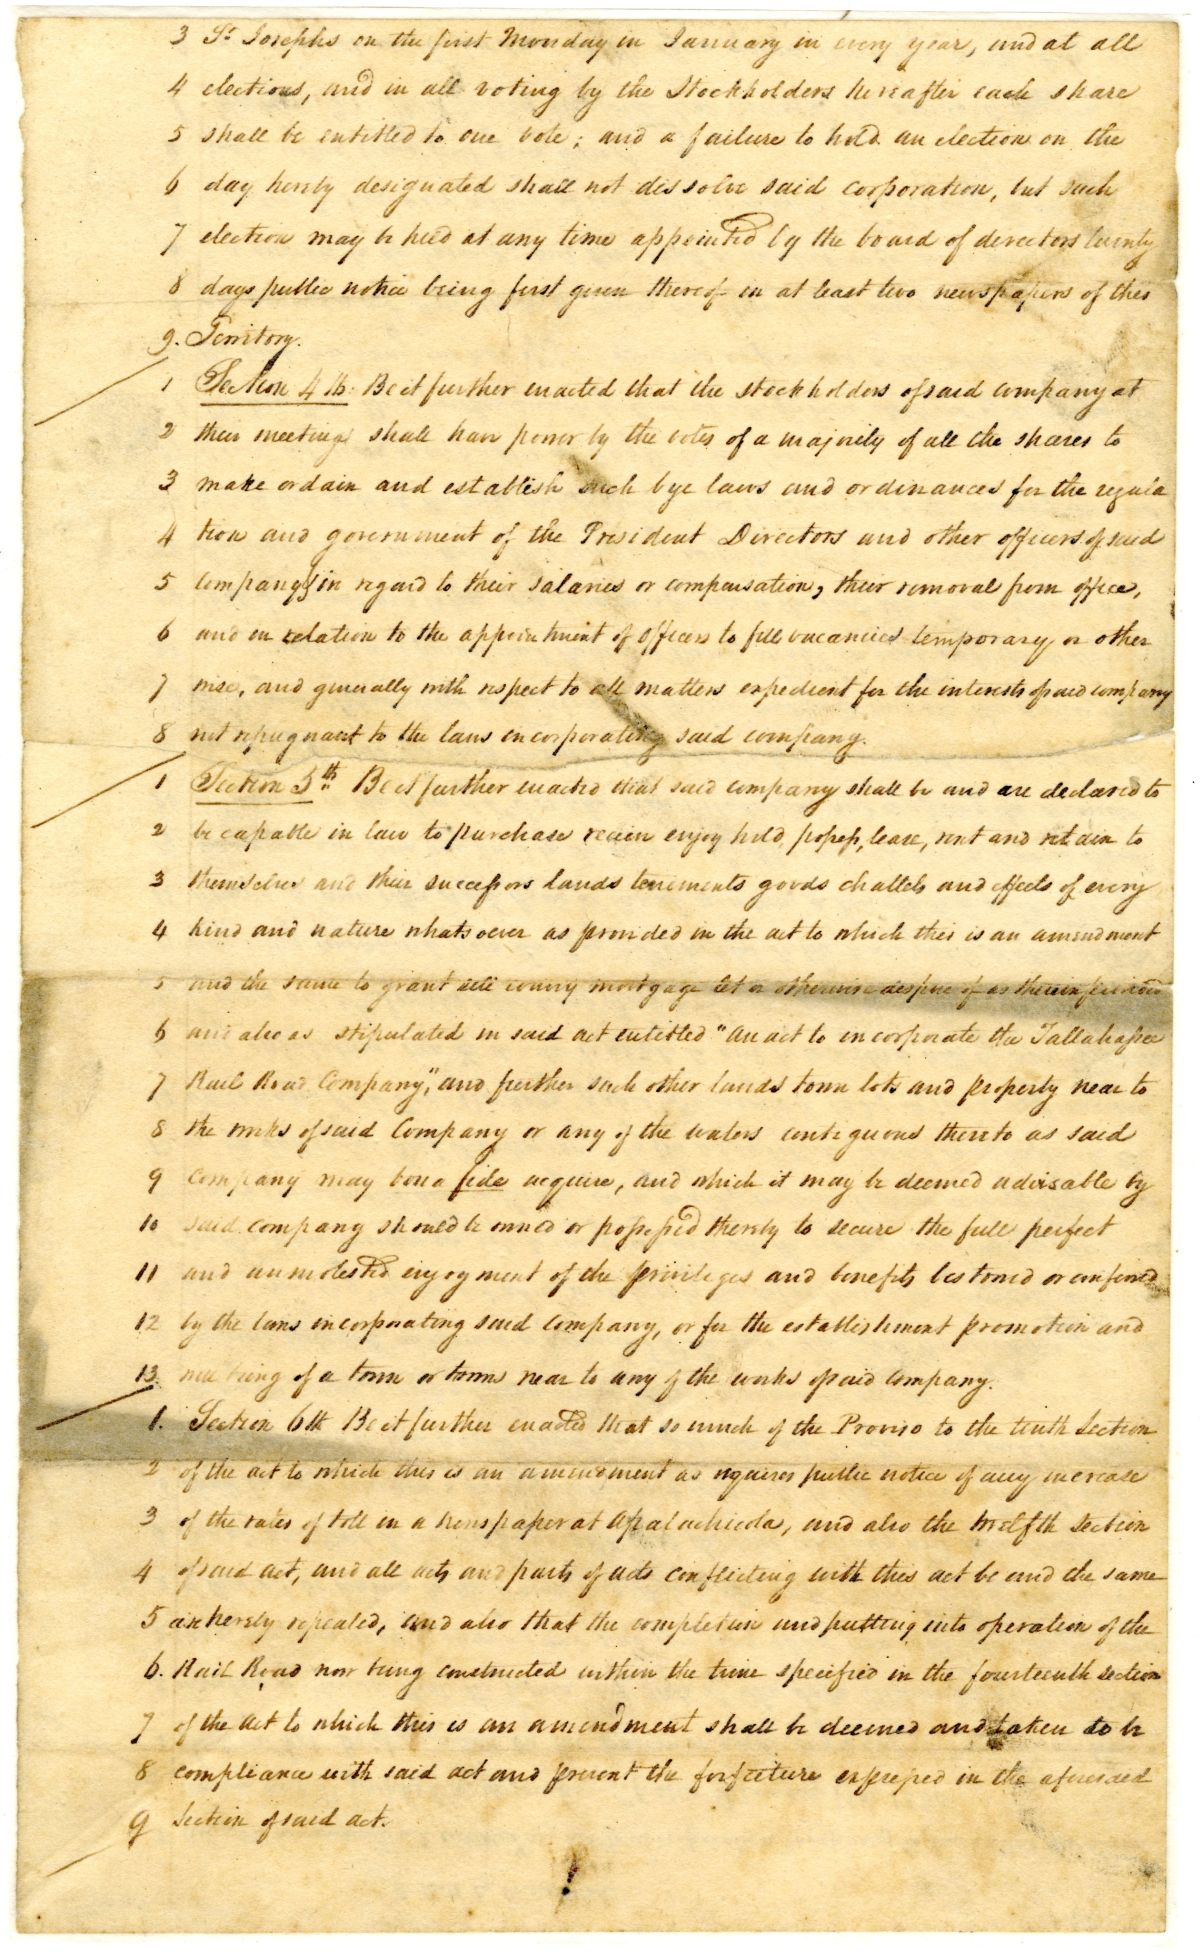 3 St Josephs on the first Monday in January in every year, and at all
4 elections, and in all voting by the Stockholders hereafter each share
5 shall be entitled to one vote; and a failure to hold an election on the
6 day hereby designated shall not dissolve said corporation, but such
7 election may be held at any time appointed by the board of directors twenty
8 days public notice being first given thereof in at least two newspapers of this
9. Territory.
1 Section 4th. Be it further enacted that the stockholders of said company at
2 their meetings shall have power by the votes of a majority of all the shares to
3 make ordain and establish such bye laws and ordinances for the regula
4 tion and government of the President Directors and other officers of said
5 Company in regard to their salaries or compensation, their removal from office,
6 and in relation to the appointment of officers to fill vacancies temporary or other
7 wise, and generally with respect to all matters expedient for the interests of said company
8 not repugnant to the laws incorporating said company.
1 Section 5th. Be it further enacted that said company shall be and are declared to
2 be capable in law to purchase receive enjoy hold possess, lease, rent and retain to
3 themselves and their successors lands tenements goods chattels and effects of every
4 kind and nature whatsoever as provided in the act to which this is an amendment
5 and the same to grant sell convey mortgage let or otherwise dispose of as therein provided
6 and also as stipulated in said act entitled "an act to incorporate the Tallahassee
7 Rail Road Company", and further such other lands town lots and property near to
8 the works of said Company or any of the waters contiguous thereto as said
9 Company may bona fide acquire, and which it may be deemed advisable by
10 said company should be owned or possessed thereby to secure the full perfect
11 and unmolested enjoyment of the privileges and benefits bestowed or conferred
12 by the laws incorporating said Company, or for the establishment promotion and
13. well being of a town or towns near to any of the works of said Company.
1. Section 6th Be it further enacted that so much of the Proviso to the tenth Section
2 of the act to which this is an amendment as requires public notice of any increase
3 of the rates of toll in a newspaper at Apalachicola, and also the twelfth section
4 of said act, and all acts and parts of acts conflicting with this act be and the same
5 are hereby repealed, and also that the completion and putting into operation of the
6. Rail Road now being constructed within the time specified in the fourteenth section
7 of the act to which this is an amendment shall be deemed and taken to be
8 compliance with said act and prevent the forfeiture expressed in the aforesaid
9 Section of said act.